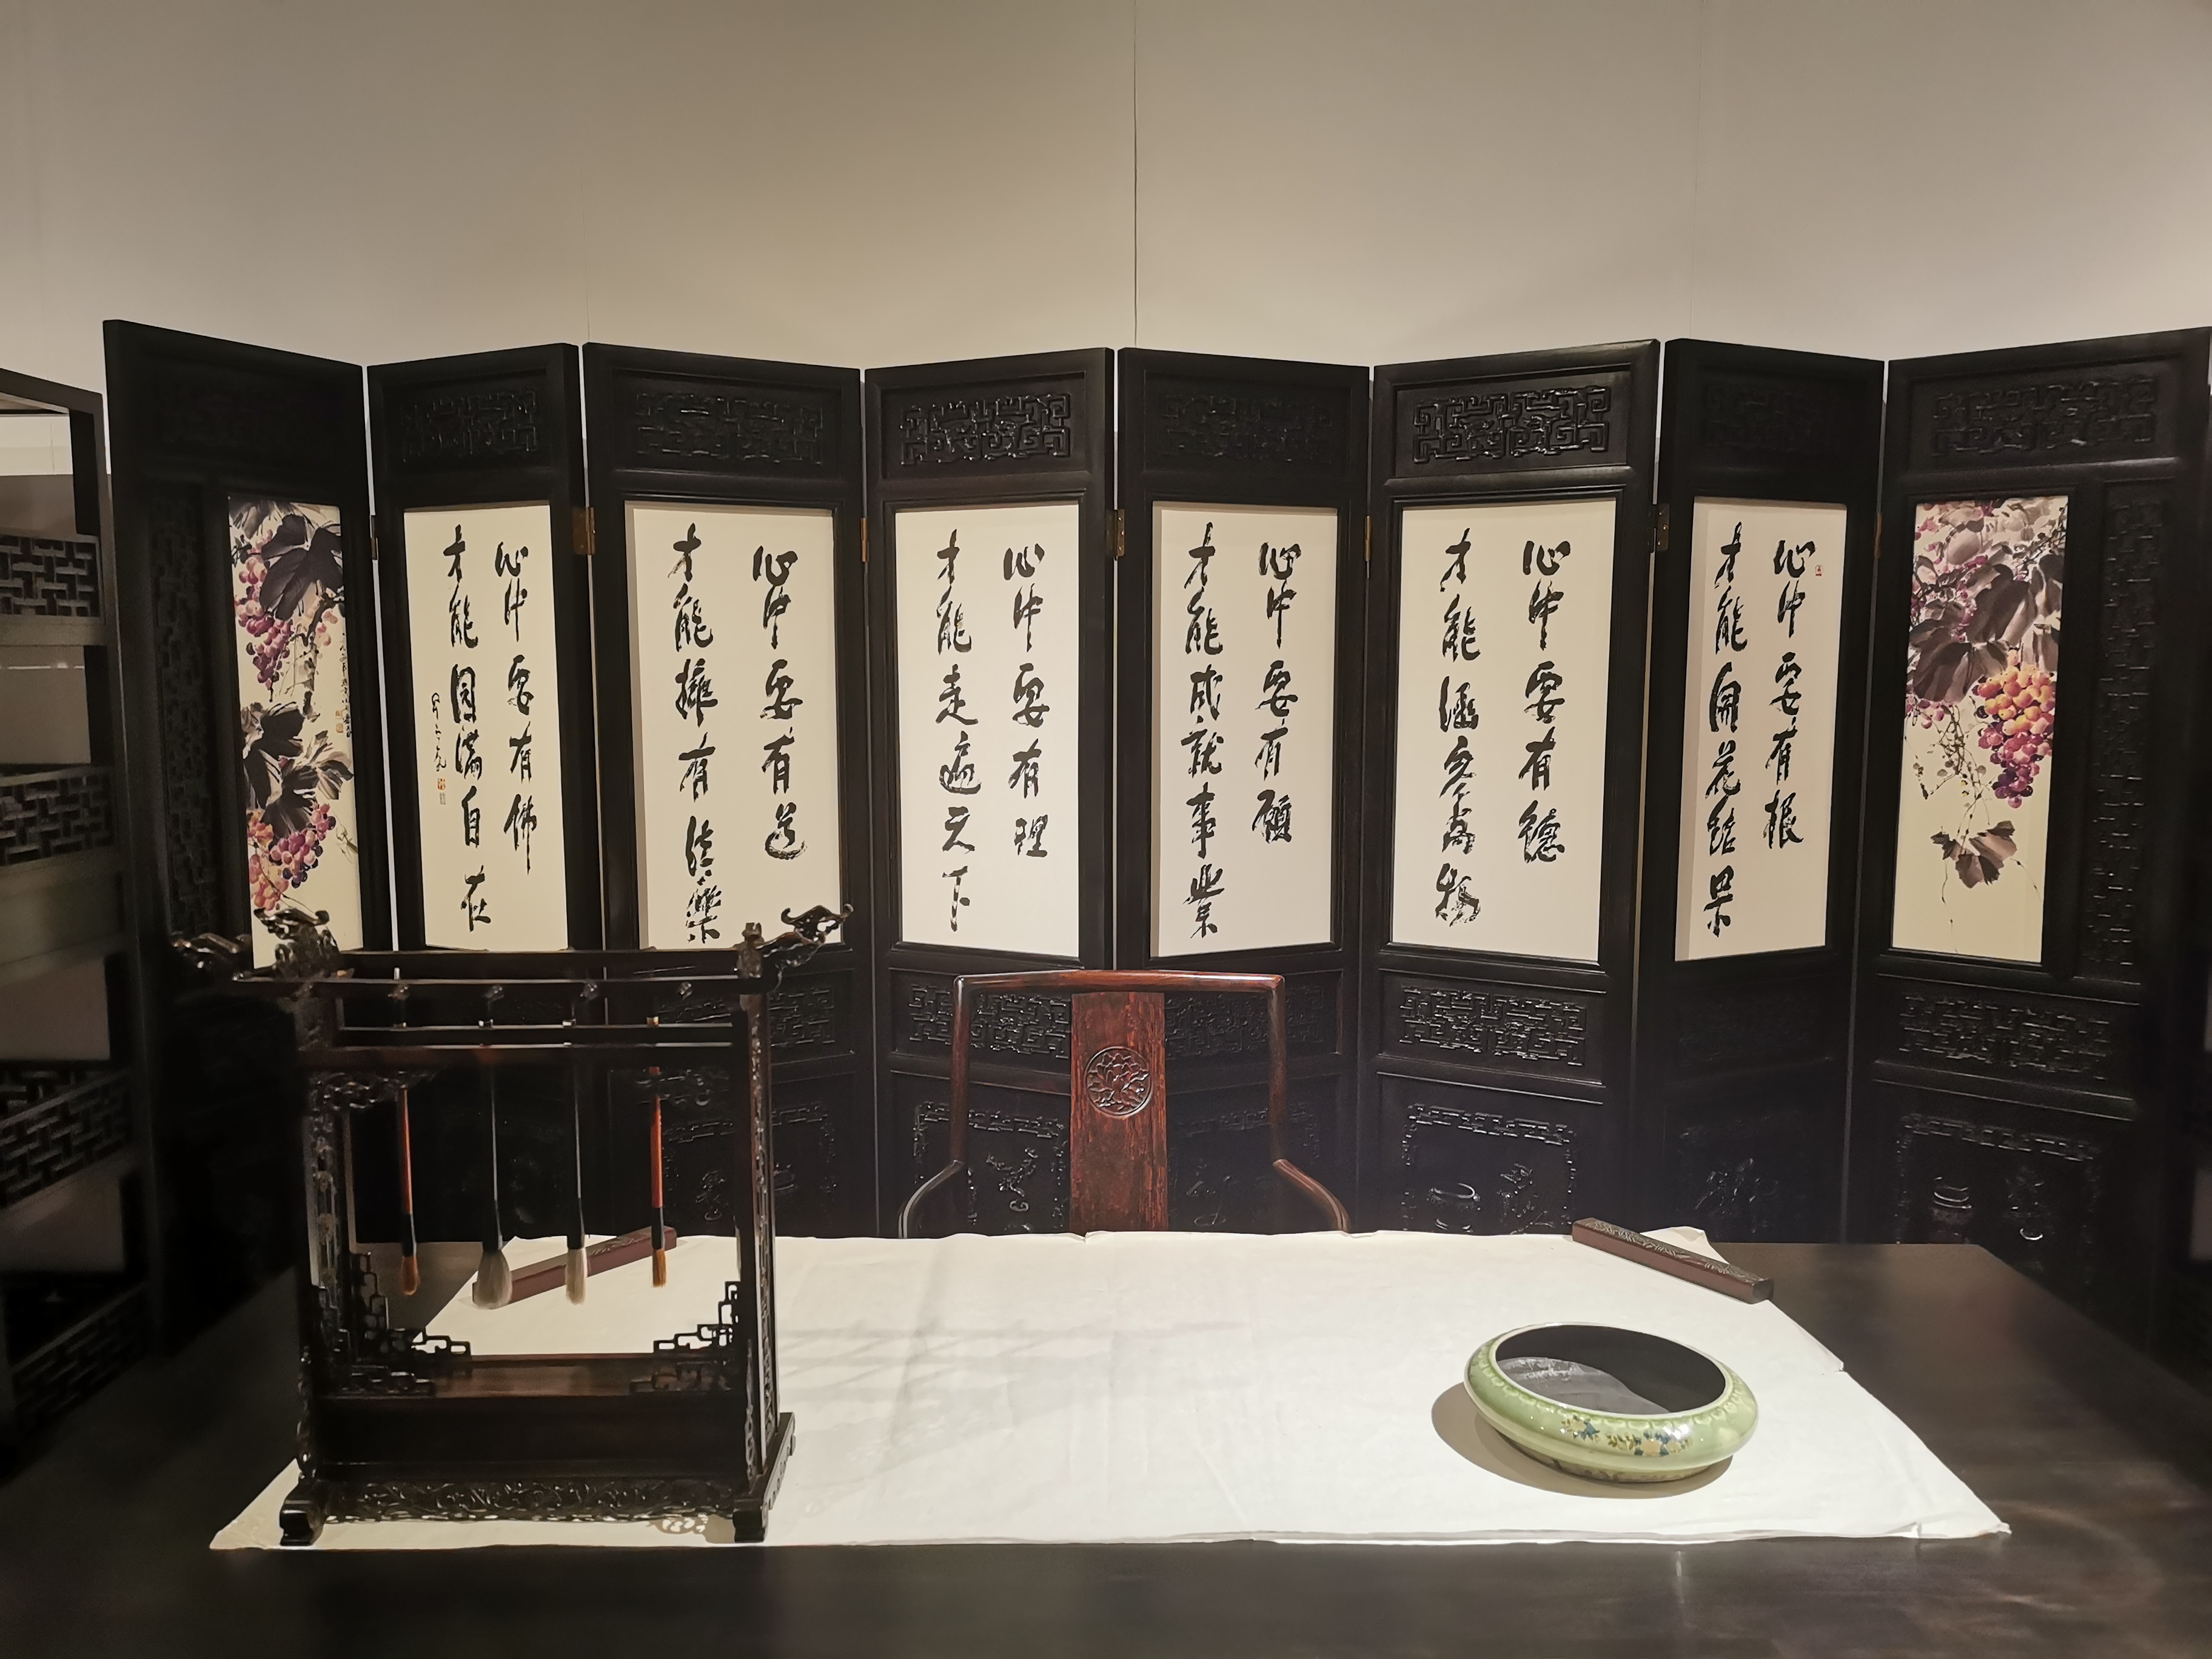 心中要有根
才能開花結果
心中要有德
才能涵容萬物
心中要有願
才能成就事業
心中要有理
才能走遍天下
心中要有道
才能擁有法樂
心中要有佛
才能圓滿自在
星雲